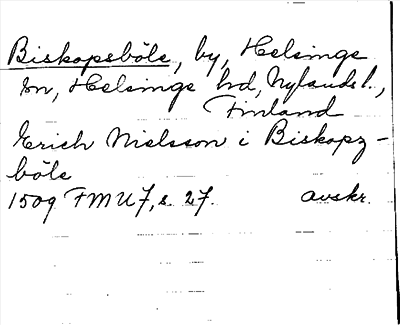 Biskopsböle, by, Helsinge
sn, Helsinge hd, Nylands l.,
Finland
Erich Nielsson i Biskopz-
böle
1509 FMU 7, s. 27. avskr.